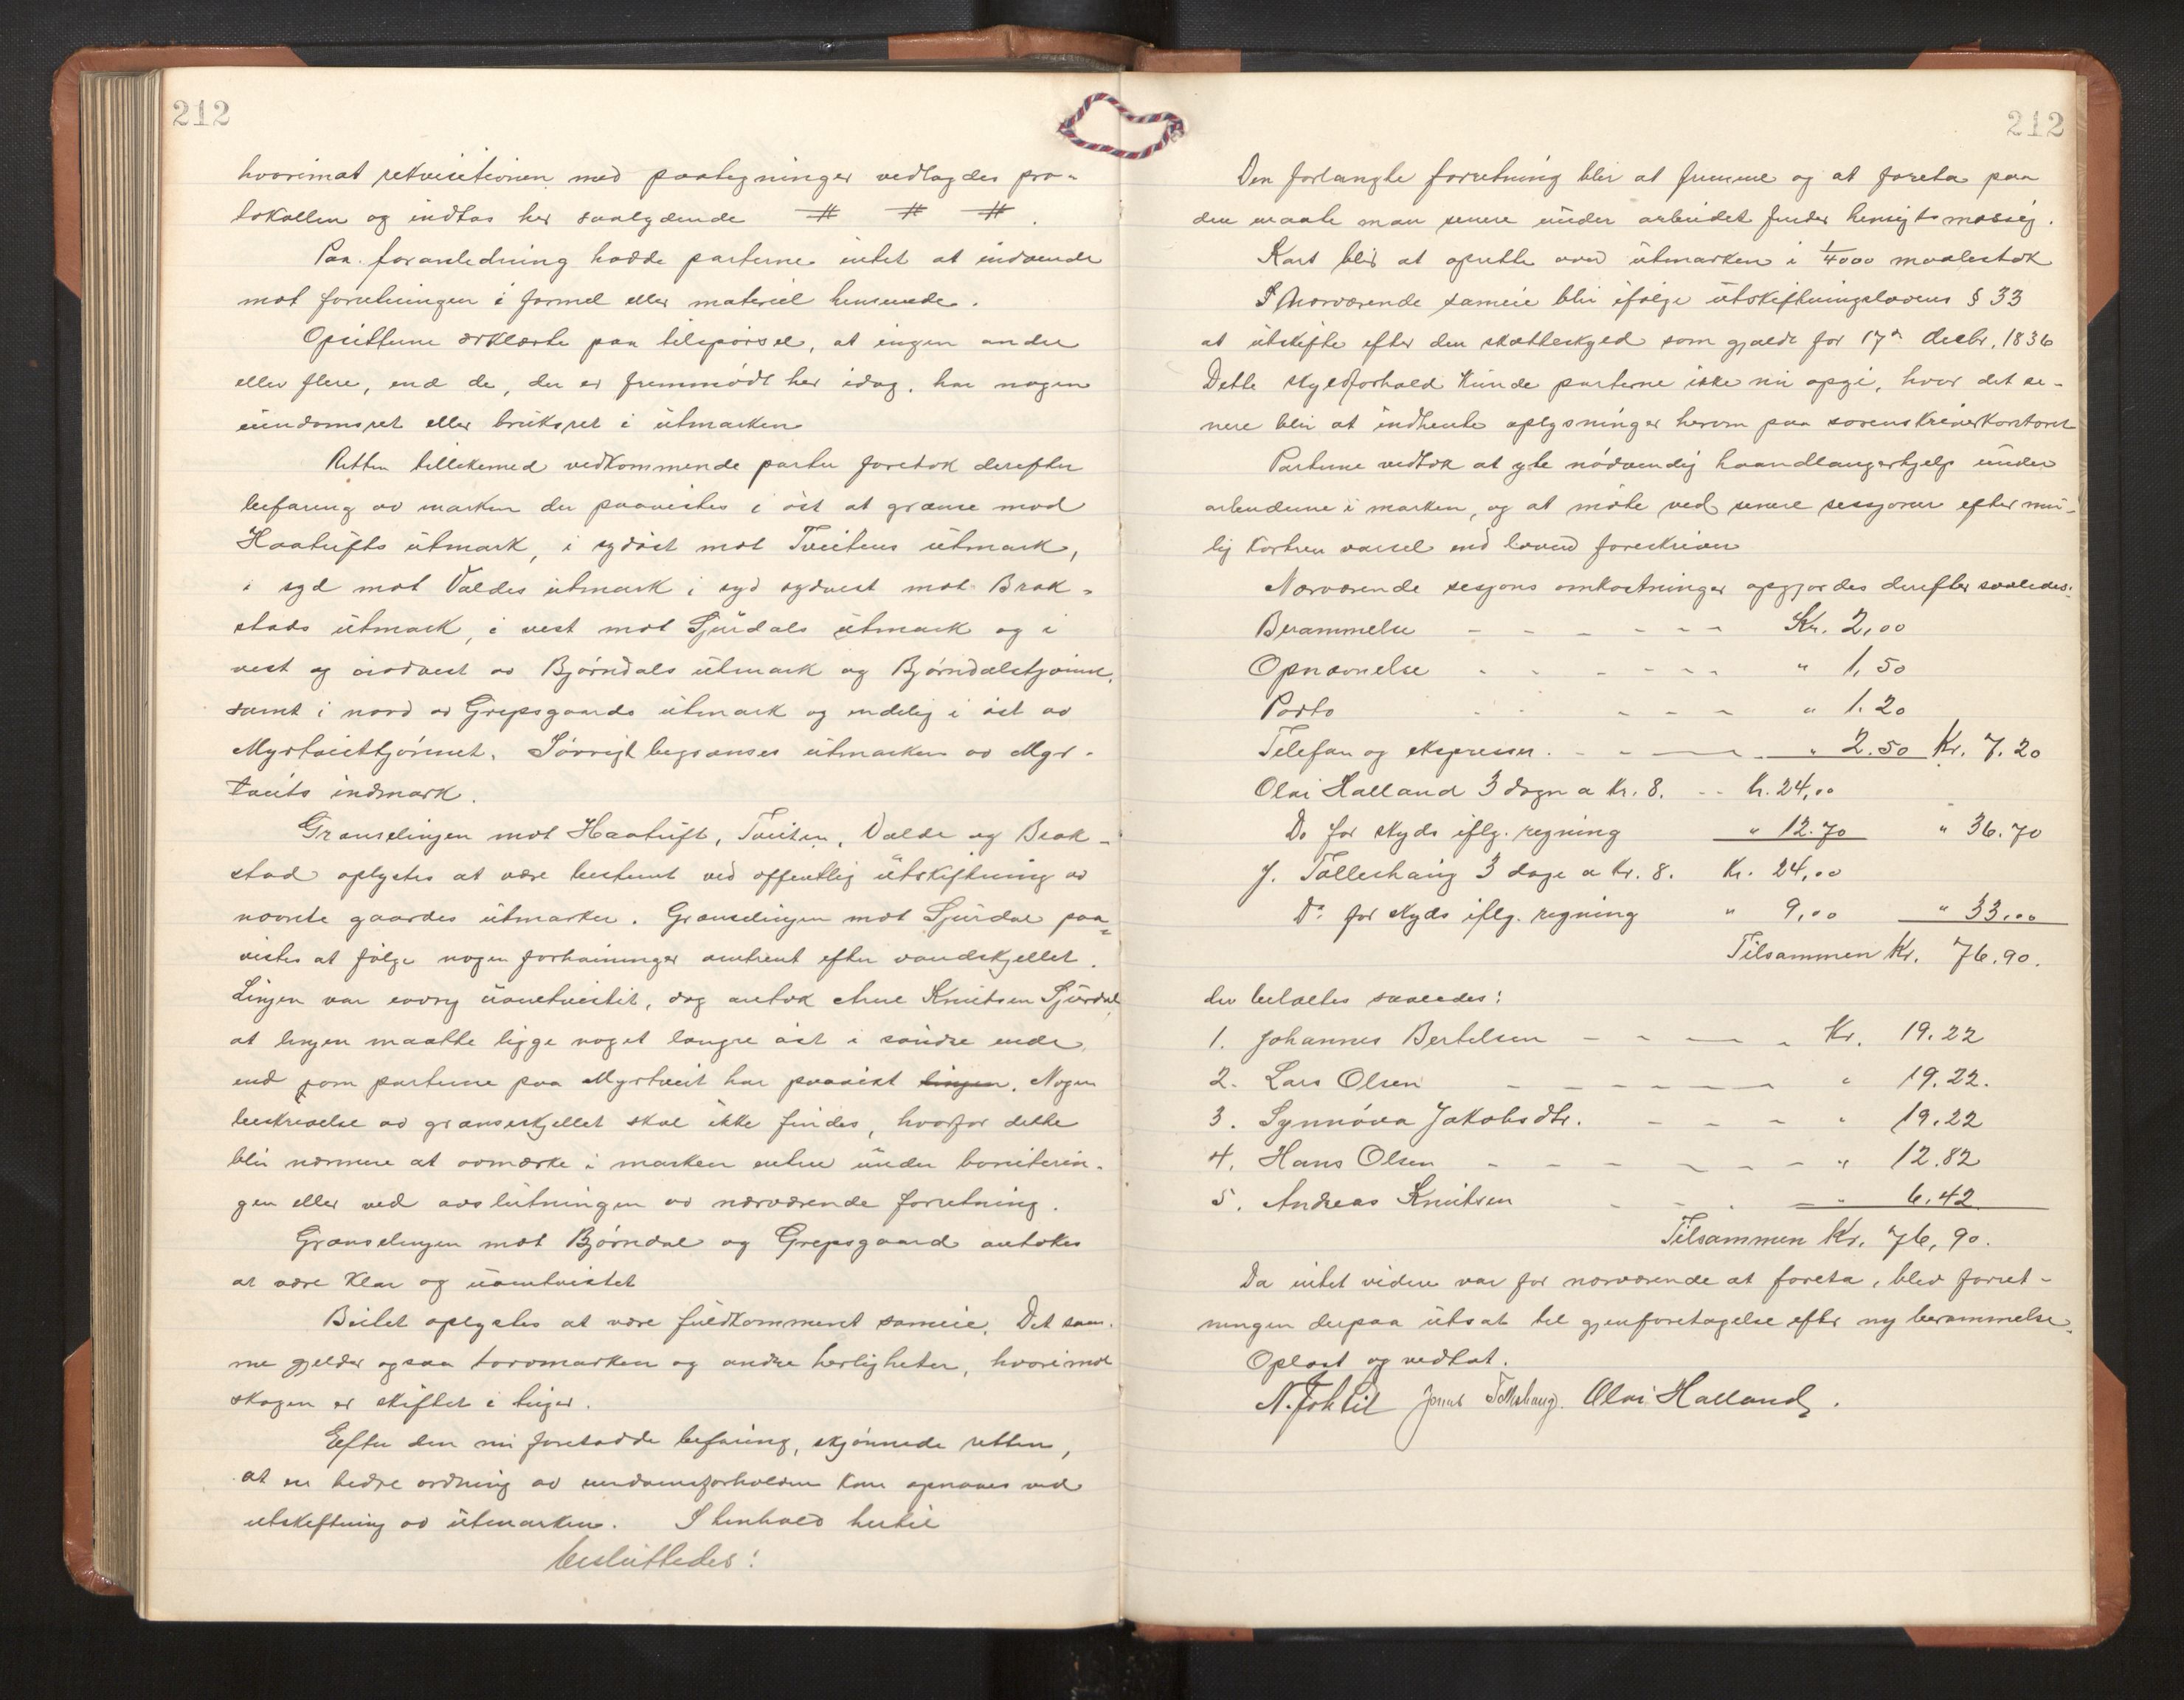 212
hvorimot rekvisitionen med paategninger vedlagdes pro-
tokollen og indtas her saalydende # # #.
Paa foranledning hadde parterne intet at indvende
mot forretningen i formel eller materiel henseende.
Opsitterne erklærte paa tilspørsel, at ingen andre
eller flere, end de, der er fremmødt her idag, har nogen
eiendomsret eller bruksret i utmarken
Retten tillikemed vedkommende parter foretok derefter
befaring av marken der paavistes i øst at grænse mod
Haatufts utmark, i sydøst mot Tveitens utmark,
i syd mot Valdes utmark i syd sydvest mot Brak-
stads utmark, i vest mot Sjurdals utmark og i
vest og nordvest av Bjørndals utmark og Bjørndalstjønn,
samt i nord av Grepsgaards utmark og endelig i øst av
Myrtveittjørnet. Iøvrigt begrænses utmarken av Myr-
tveits indmark.
Grænselinjen mot Haatuft, Tveiten, Valde og Brak-
stad oplystes at være bestemt ved offentlig utskiftning av
nævnte gaardes utmarker. Grænselinjen mot Sjurdal paa-
vistes at følge nogen forhøininger omtrent efter vandskjellet.
Linjen var iøvrig uomtvistet, dog antok Arne Knutsen Sjurdal
at linjen maatte ligge noget længre øst i søndre ende,
end som parterne paa Myrtveit har paavist linjen. Nogen
beskrivelse av grænseskjellet skal ikke findes, hvorfor dette
blir nærmere at avmerke i marken enten under boniterin-
gen eller ved avslutningen av nærværende forretning.
Grænselinjen mot Bjørndal og Grepsgaard antokes
at være klar og uomtvistet
Beitet oplystes at være fuldkomment sameie. Det sam-
me gjelder ogsaa torvmarken og andre herligheter, hvorimot
skogen er skiftet i teiger.
Efter den nu foretadde befaring, skjønnede retten,
at en bedre ordning av eiendomsforholdene kan opnaaes ved
utskiftning av utmarken. I henhold hertil
besluttedes:
212
Den forlangte forretning blir at fremme og at foreta paa
den maate man senere under arbeidet finder hensigtsmæssig.
Kart blir at oprette over utmarken i 1/4000 maalestok
I nærværende sameie blir ifølge utskiftningslovens § 33
at utskifte efter den skatteskyld som gjaldt før 17de decbr. 1836
Dette skyldforhold kunde parterne ikke nu opgi, hvor det se-
nere blir at indhente oplysninger herom paa sorenskriverkontoret
Parterne vedtok at yte nødvendig haandlangerhjelp under
arbeiderne i marken, og at møte ved senere sessjoner efter mu-
lig kortere varsel end loven foreskriver
Nærværende sesjons omkostninger opgjordes derefter saaledes:
Berammelse - - - - - - Kr. 2,00
Opnævnelse - - - - - - " 1,50
Porto - - - - - " 1.20
Telefon og ekspresser. - - - - " 2.50 Kr. 7.20
Olai Halland 3 dogn a kr. 8. - - Kr. 24,00
Do for skyds iflg. regning " 12.70 " 36.70
J. Tolleshaug 3 dage a kr. 8. Kr. 24,00
Do for skyds iflg. regning " 9,00 " 33,00
Tilsammen Kr. 76.90.
der betaltes saaledes:
1. Johannes Bertelsen - - - - Kr. 19.22
2. Lars Olsen - - - - - - " 19.22.
3. Synnøva Jakobsdtr. - - - " 19.22
4. Hans Olsen - - - - - - " 12.82
5. Andreas Knutsen - - - - " 6.42
Tilsammen Kr. 76,90.
Da intet videre var for nærværende at foreta, blev forret-
ningen derpaa utsat til gjenforetagelse efter ny berammelse.
Oplæst og vedtat.
Jonas Tolleshaug. Olai Halland.